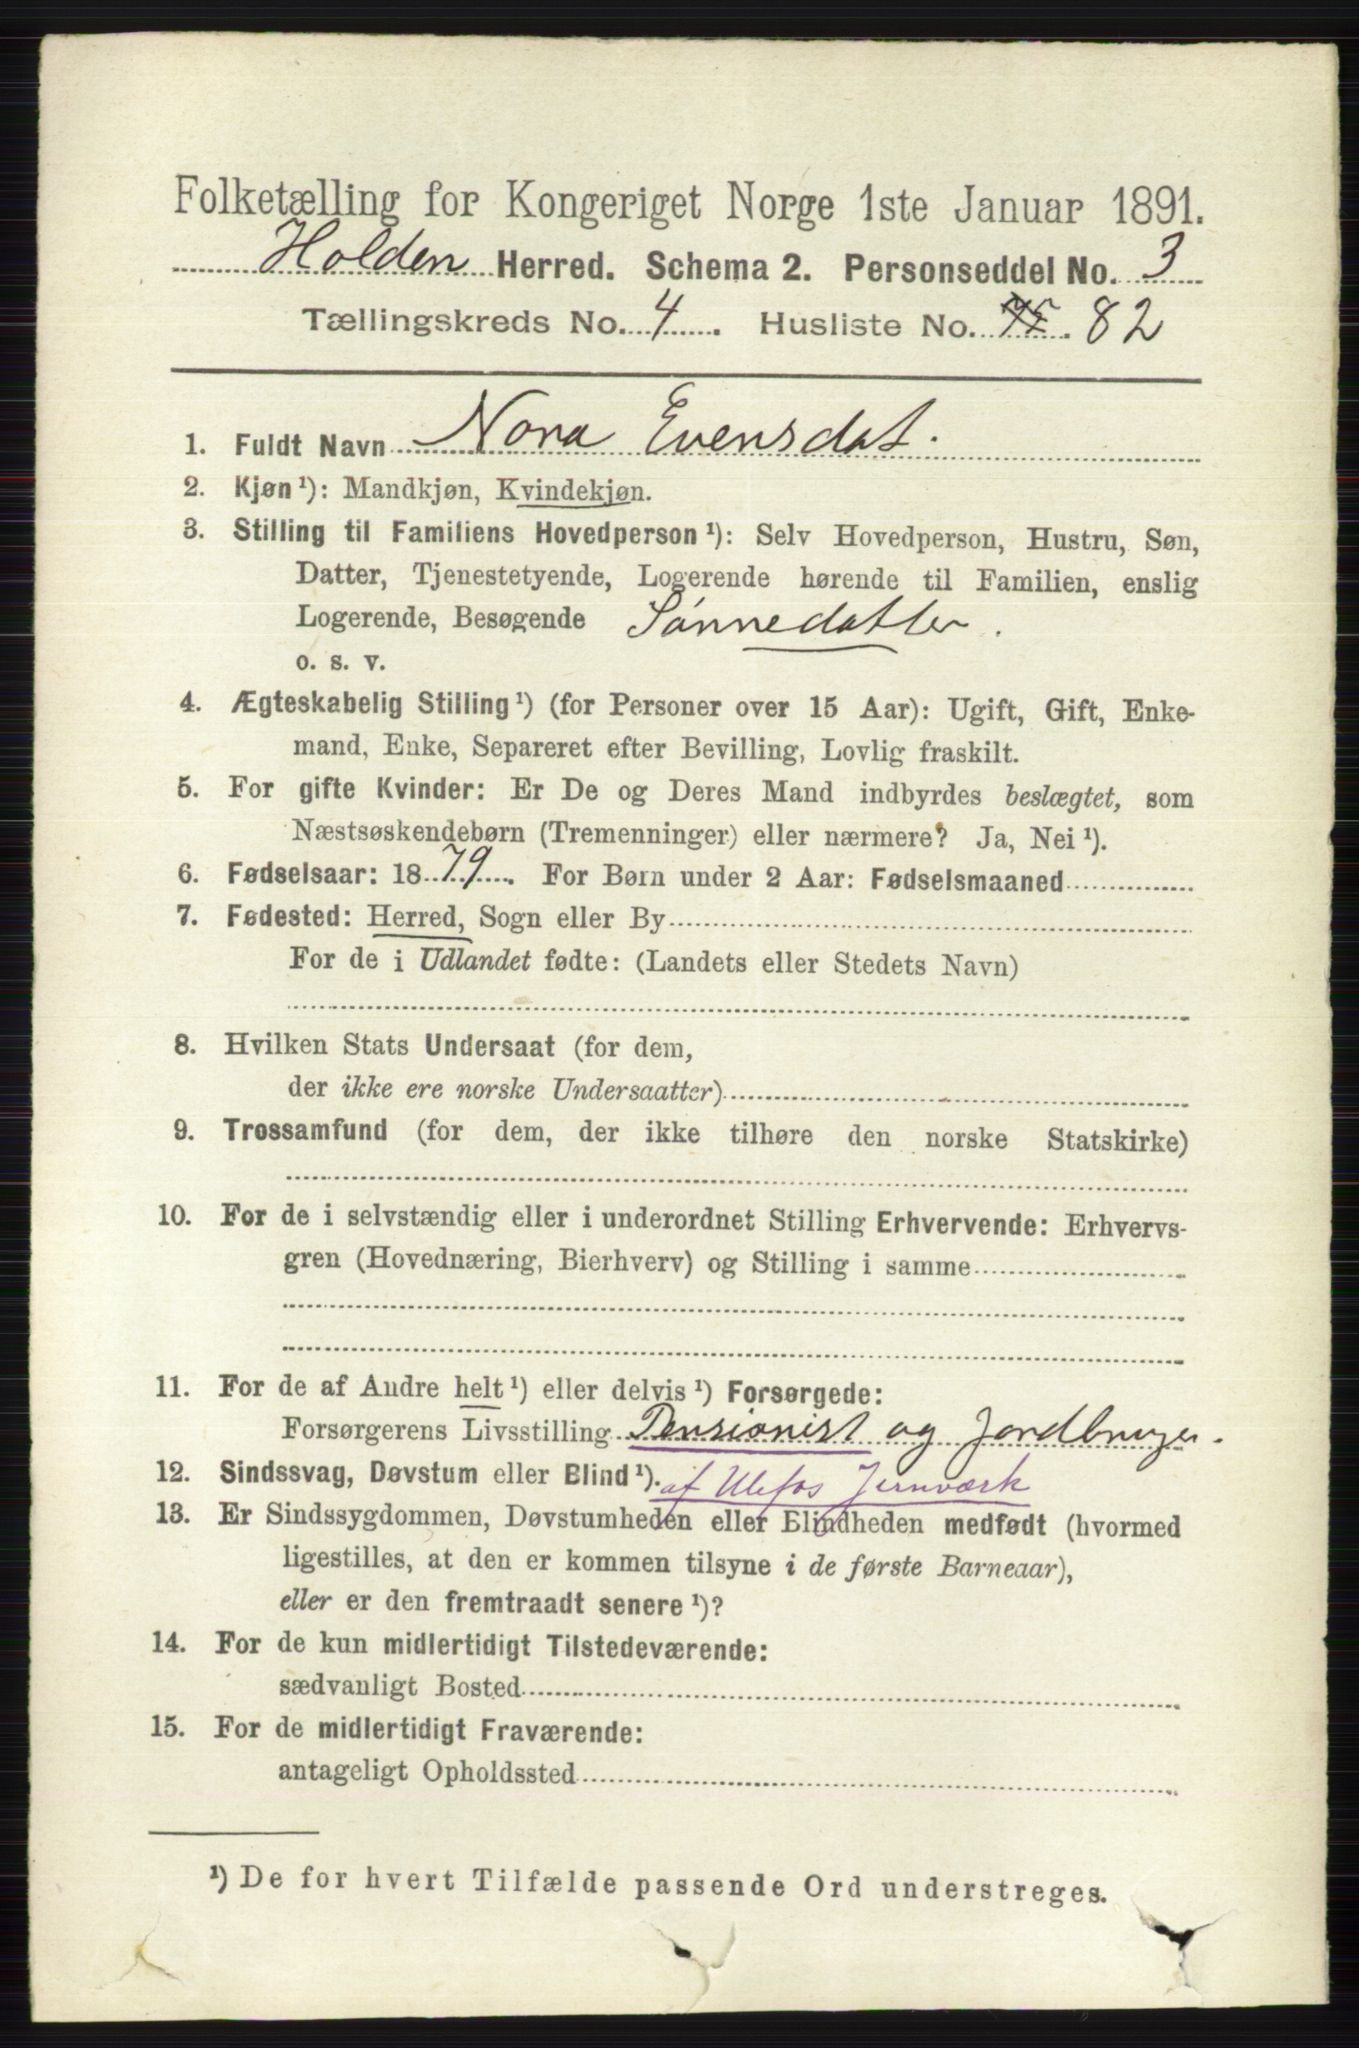 Folketælling for Kongeriget Norge 1ste Januar 1891.
Holden Herred. Schema 2. Personseddel No. 3
Tællingskreds No. 4. Husliste No. 75. 82
1. Fuldt Navn Nora Evensdat.
2. Kjøn ¹): Mandkjøn, Kvindekjøn.
3. Stilling til Familiens Hovedperson ¹): Selv Hovedperson, Hustru, Søn,
Datter, Tjenestetyende, Logerende hørende til Familien, enslig
Logerende, Besøgende Sønnedatter.
o. s. v.
4. Ægteskabelig Stilling ¹) (for Personer over 15 Aar): Ugift, Gift, Enke-
mand, Enke, Separeret efter Bevilling, Lovlig fraskilt.
5. For gifte Kvinder: Er De og Deres Mand indbyrdes beslægtet, som
Næstsøskendebørn (Tremenninger) eller nærmere? Ja, Nei ¹).
6. Fødselsaar: 1879. For Børn under 2 Aar: Fødselsmaaned
7. Fødested: Herred, Sogn eller By
For de i Udlandet fødte: (Landets eller Stedets Navn)
8. Hvilken Stats Undersaat (for dem,
der ikke ere norske Undersaatter)
9. Trossamfund (for dem, der ikke tilhøre den norske Statskirke)
10. For de i selvstændig eller i underordnet Stilling Erhvervende: Erhvervs-
gren (Hovednæring, Bierhverv) og Stilling i samme
11. For de af Andre helt ¹) eller delvis ¹) Forsørgede:
Forsørgerens Livsstilling Pensionist og Jordbruger.
12. Sindssvag, Døvstum eller Blind ¹). af Ulefos Jernværk
13. Er Sindssygdommen, Døvstumheden eller Blindheden medfødt (hvormed
ligestilles, at den er kommen tilsyne i de første Barneaar),
eller er den fremtraadt senere ¹)?
14. For de kun midlertidigt Tilstedeværende:
sædvanligt Bosted
15. For de midlertidigt Fraværende:
antageligt Opholdssted
¹) De for hvert Tilfælde passende Ord understreges.